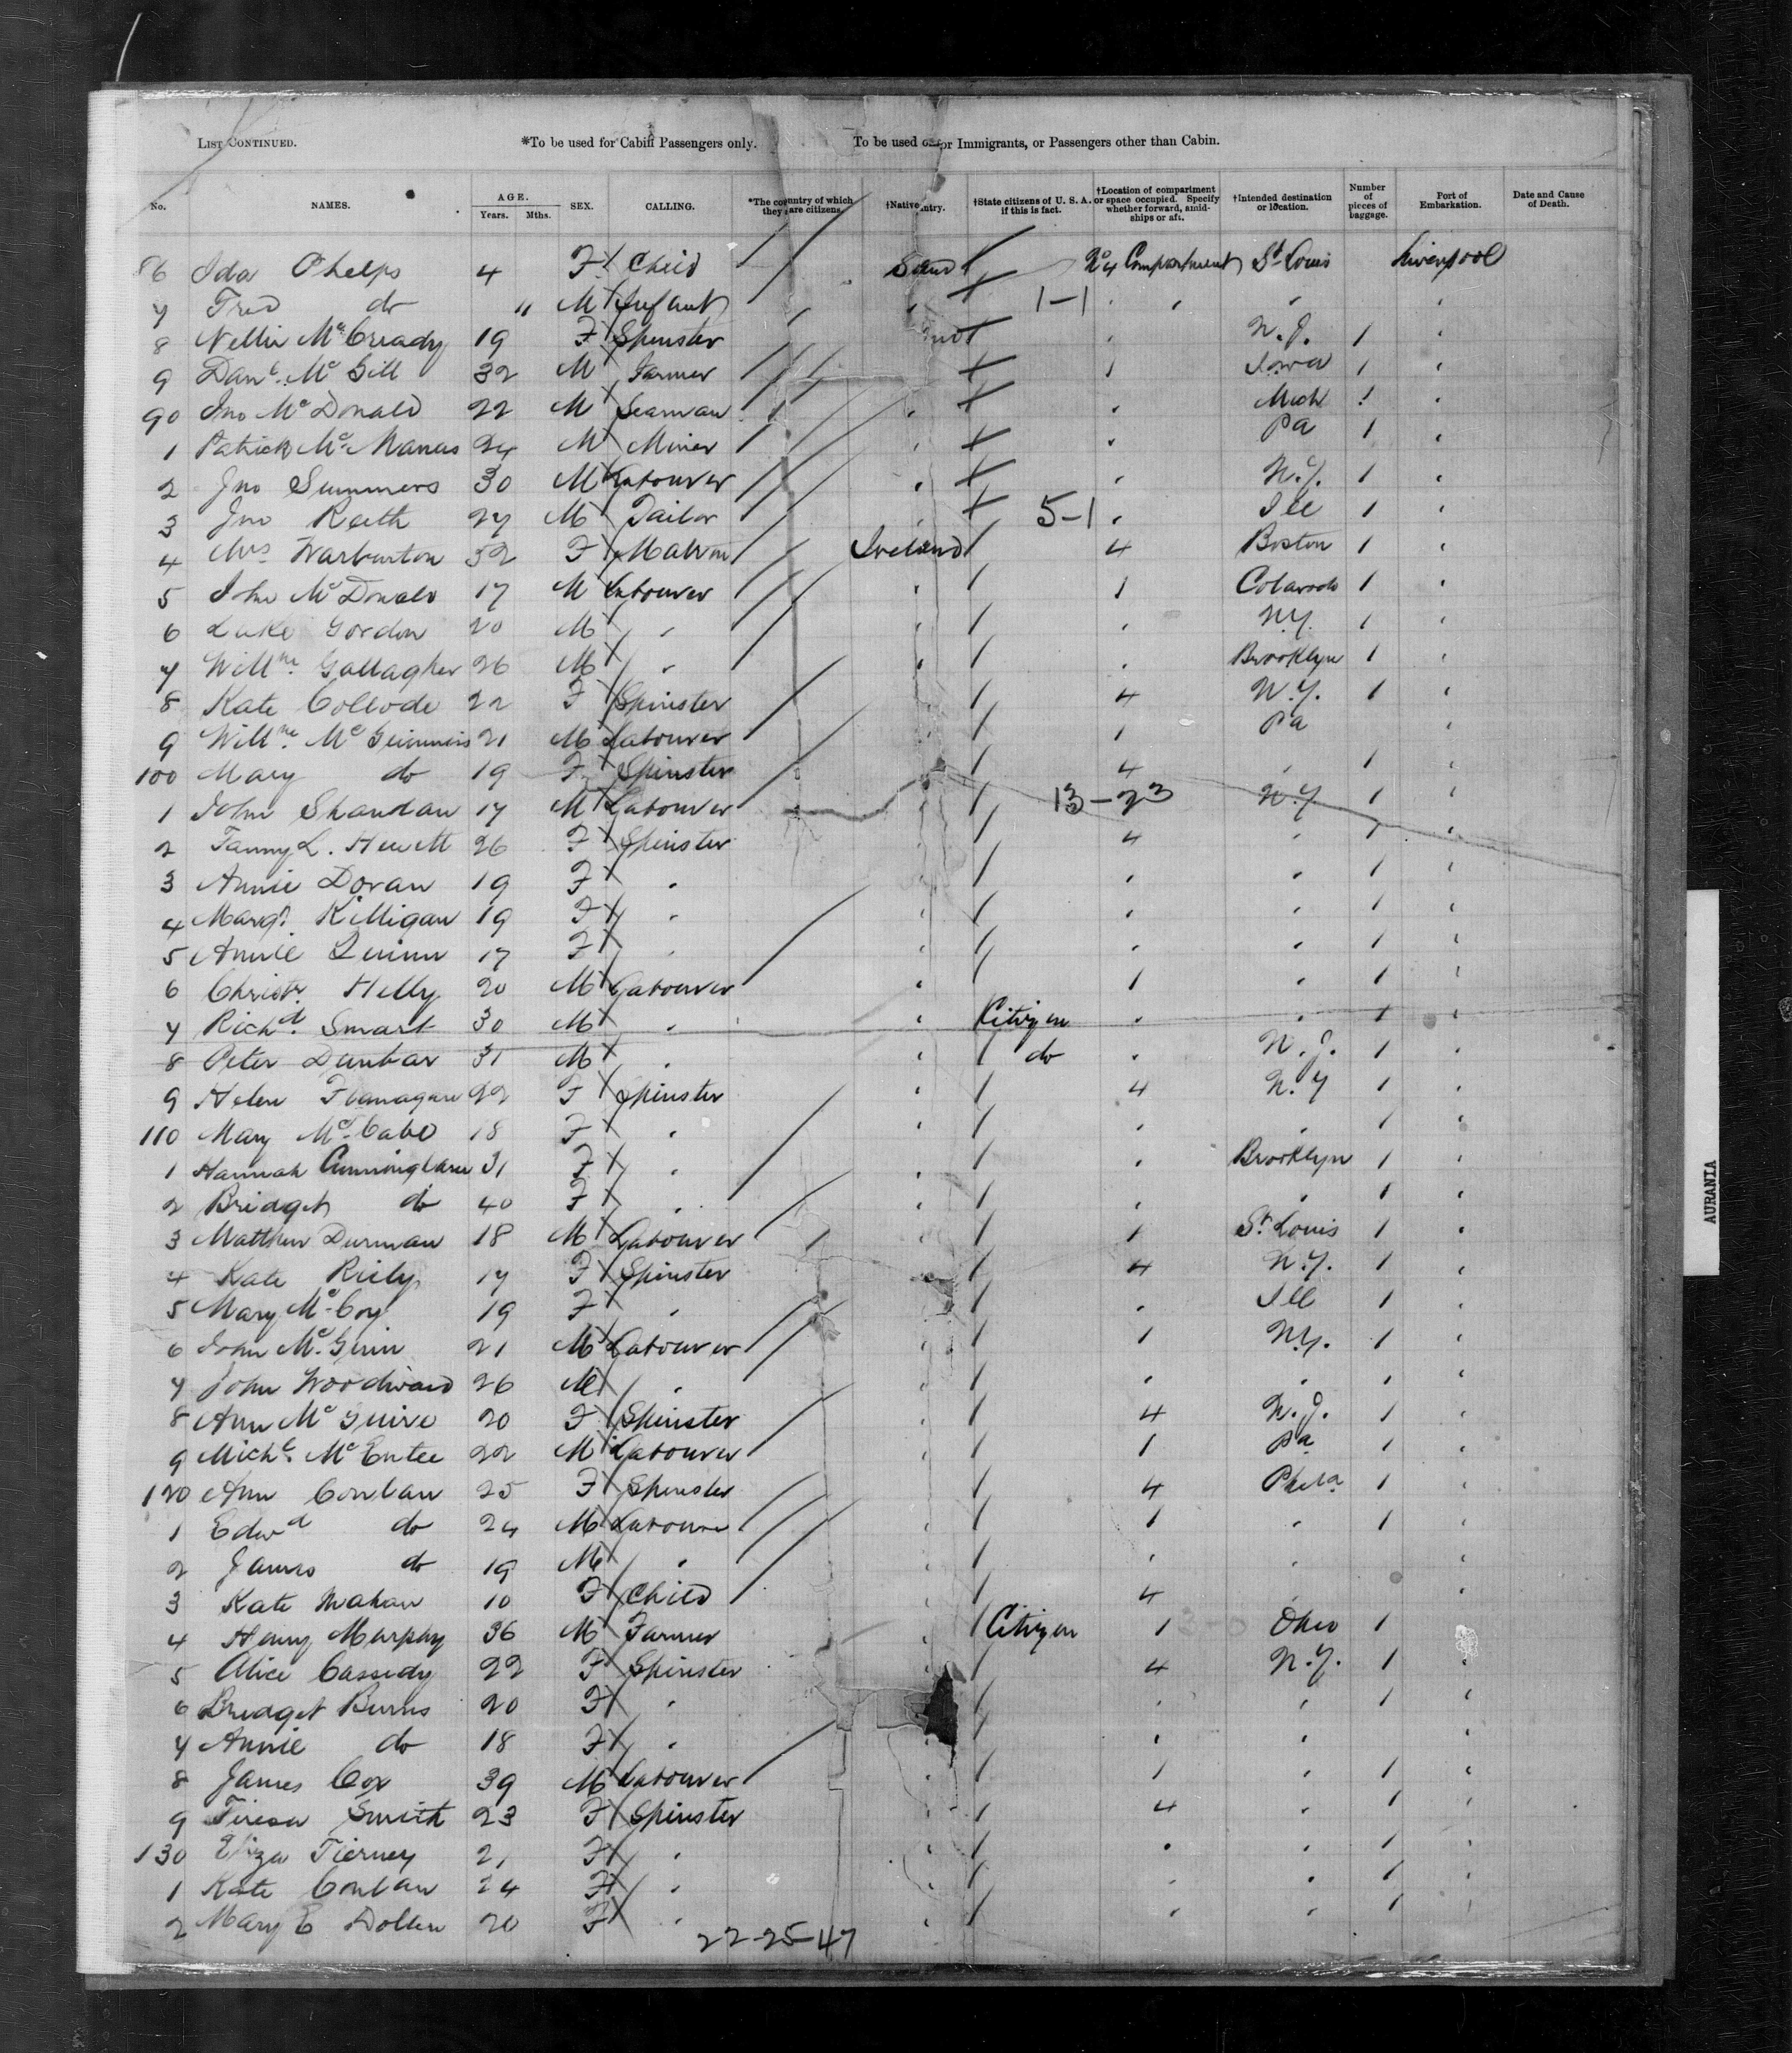 LIST CONTINUED. *To be used for Cabin Passengers only. To be used or Immigrants, or Passengers other than Cabin.
No. NAMES. AGE. Years. Mths. SEX. CALLING. *The country of which they are citizens. †Native ntry. †State citizens of U. S. A. if this is fact. †Location of compartment or space occupied. Specify whether forward, amidships or aft. †Intended destination or location. Number of pieces of baggage. Port of Embarkation. Date and Cause of Death.
86 Ida Phelps 4 F Child No 4 Compartment St Louis Liverpool
7 Fred do " M Infant 1-1 " " " "
8 Nellie McCready 19 F Spinster " N.J. 1 "
9 Danl. McGill 32 M Farmer 1 Iowa 1 "
90 Jno McDonald 22 M Seaman " " Mich 1 "
1 Patrick McManus 24 M Miner " " Pa 1 "
2 Jno Summers 30 M Labourer " " N.Y. 1 "
3 Jno Keith 27 M Tailor " 5-1 " Ill 1 "
4 Mrs Warburton 52 F Matron Ireland 4 Boston 1 "
5 John McDonald 17 M Labourer " 1 Colarado 1 "
6 Luke Gordon 20 M " " " N.Y. 1 "
7 Willm. Gallagher 26 M " " " Brooklyn 1 "
8 Kate Collode 22 F Spinster " 4 N.Y. 1 "
9 Willm. 21 M Labourer " 1 Pa "
100 Mary do 19 F Spinster " 4 " 1 "
1 John Shandan 17 M Labourer " 13-23 N.Y. 1 "
2 Fanny L. Hewett 26 F Spinster " 4 " 1 "
3 Annie Doran 19 F " " " " 1 "
4 Margt. Killigan 19 F " " " " 1 "
5 Annie Quinn 17 F " " " " 1 "
6 Christr. Helly 20 M Labourer " 1 " 1 "
7 Richd. Smart 30 M " " Citizen " " 1 "
8 Peter Dunbar 31 M " " do " N.J. 1 "
9 Helen Flanagan 22 F Spinster " 4 N.Y 1 "
110 Mary McCabe 18 F " " " " 1 "
1 Hannah Cunningham 31 F " " " Brooklyn 1 "
2 Bridget do 40 F " " " " 1 "
3 Matthew Durnan 18 M Labourer " 1 St. Louis 1 "
4 Kate Riely 17 F Spinster " 4 N.Y. 1 "
5 Mary McCoy 19 F " " " Ill 1 "
6 John McGinn 21 M Labourer " 1 N.Y. 1 "
7 John Woodward 26 M " " " " 1 "
8 Ann McGuire 20 F Spinster " 4 N.J. 1 "
9 Michl. McEntee 22 M Labourer " 1 Pa 1 "
120 Ann Conlan 25 F Spinster " 4 Phila 1 "
1 Edwd do 24 M Labourer " 1 " 1 "
2 James do 19 M " " " " "
3 Kate Mahan 10 F Child " 4 "
4 Henry Murphy 36 M Farmer " Citizen 1 Ohio 1
5 Alice Cassidy 22 F Spinster " 4 N.Y. 1 "
6 Bridget Burns 20 F " " " 1 "
7 Annie do 18 F " " " "
8 James Cox 39 M Labourer " 1 " 1 "
9 Teresa Smith 23 F Spinster " 4 " 1 "
130 Eliza Tierney 21 F " " " " 1 "
1 Kate Conlan 24 F " " " " 1 "
2 Mary E Dollen 20 F " " " " 1
22-25-47
AURANIA